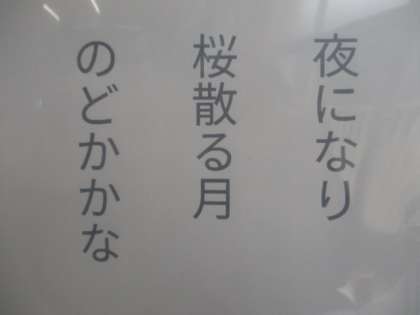 夜になり
桜散る月
のどかかな